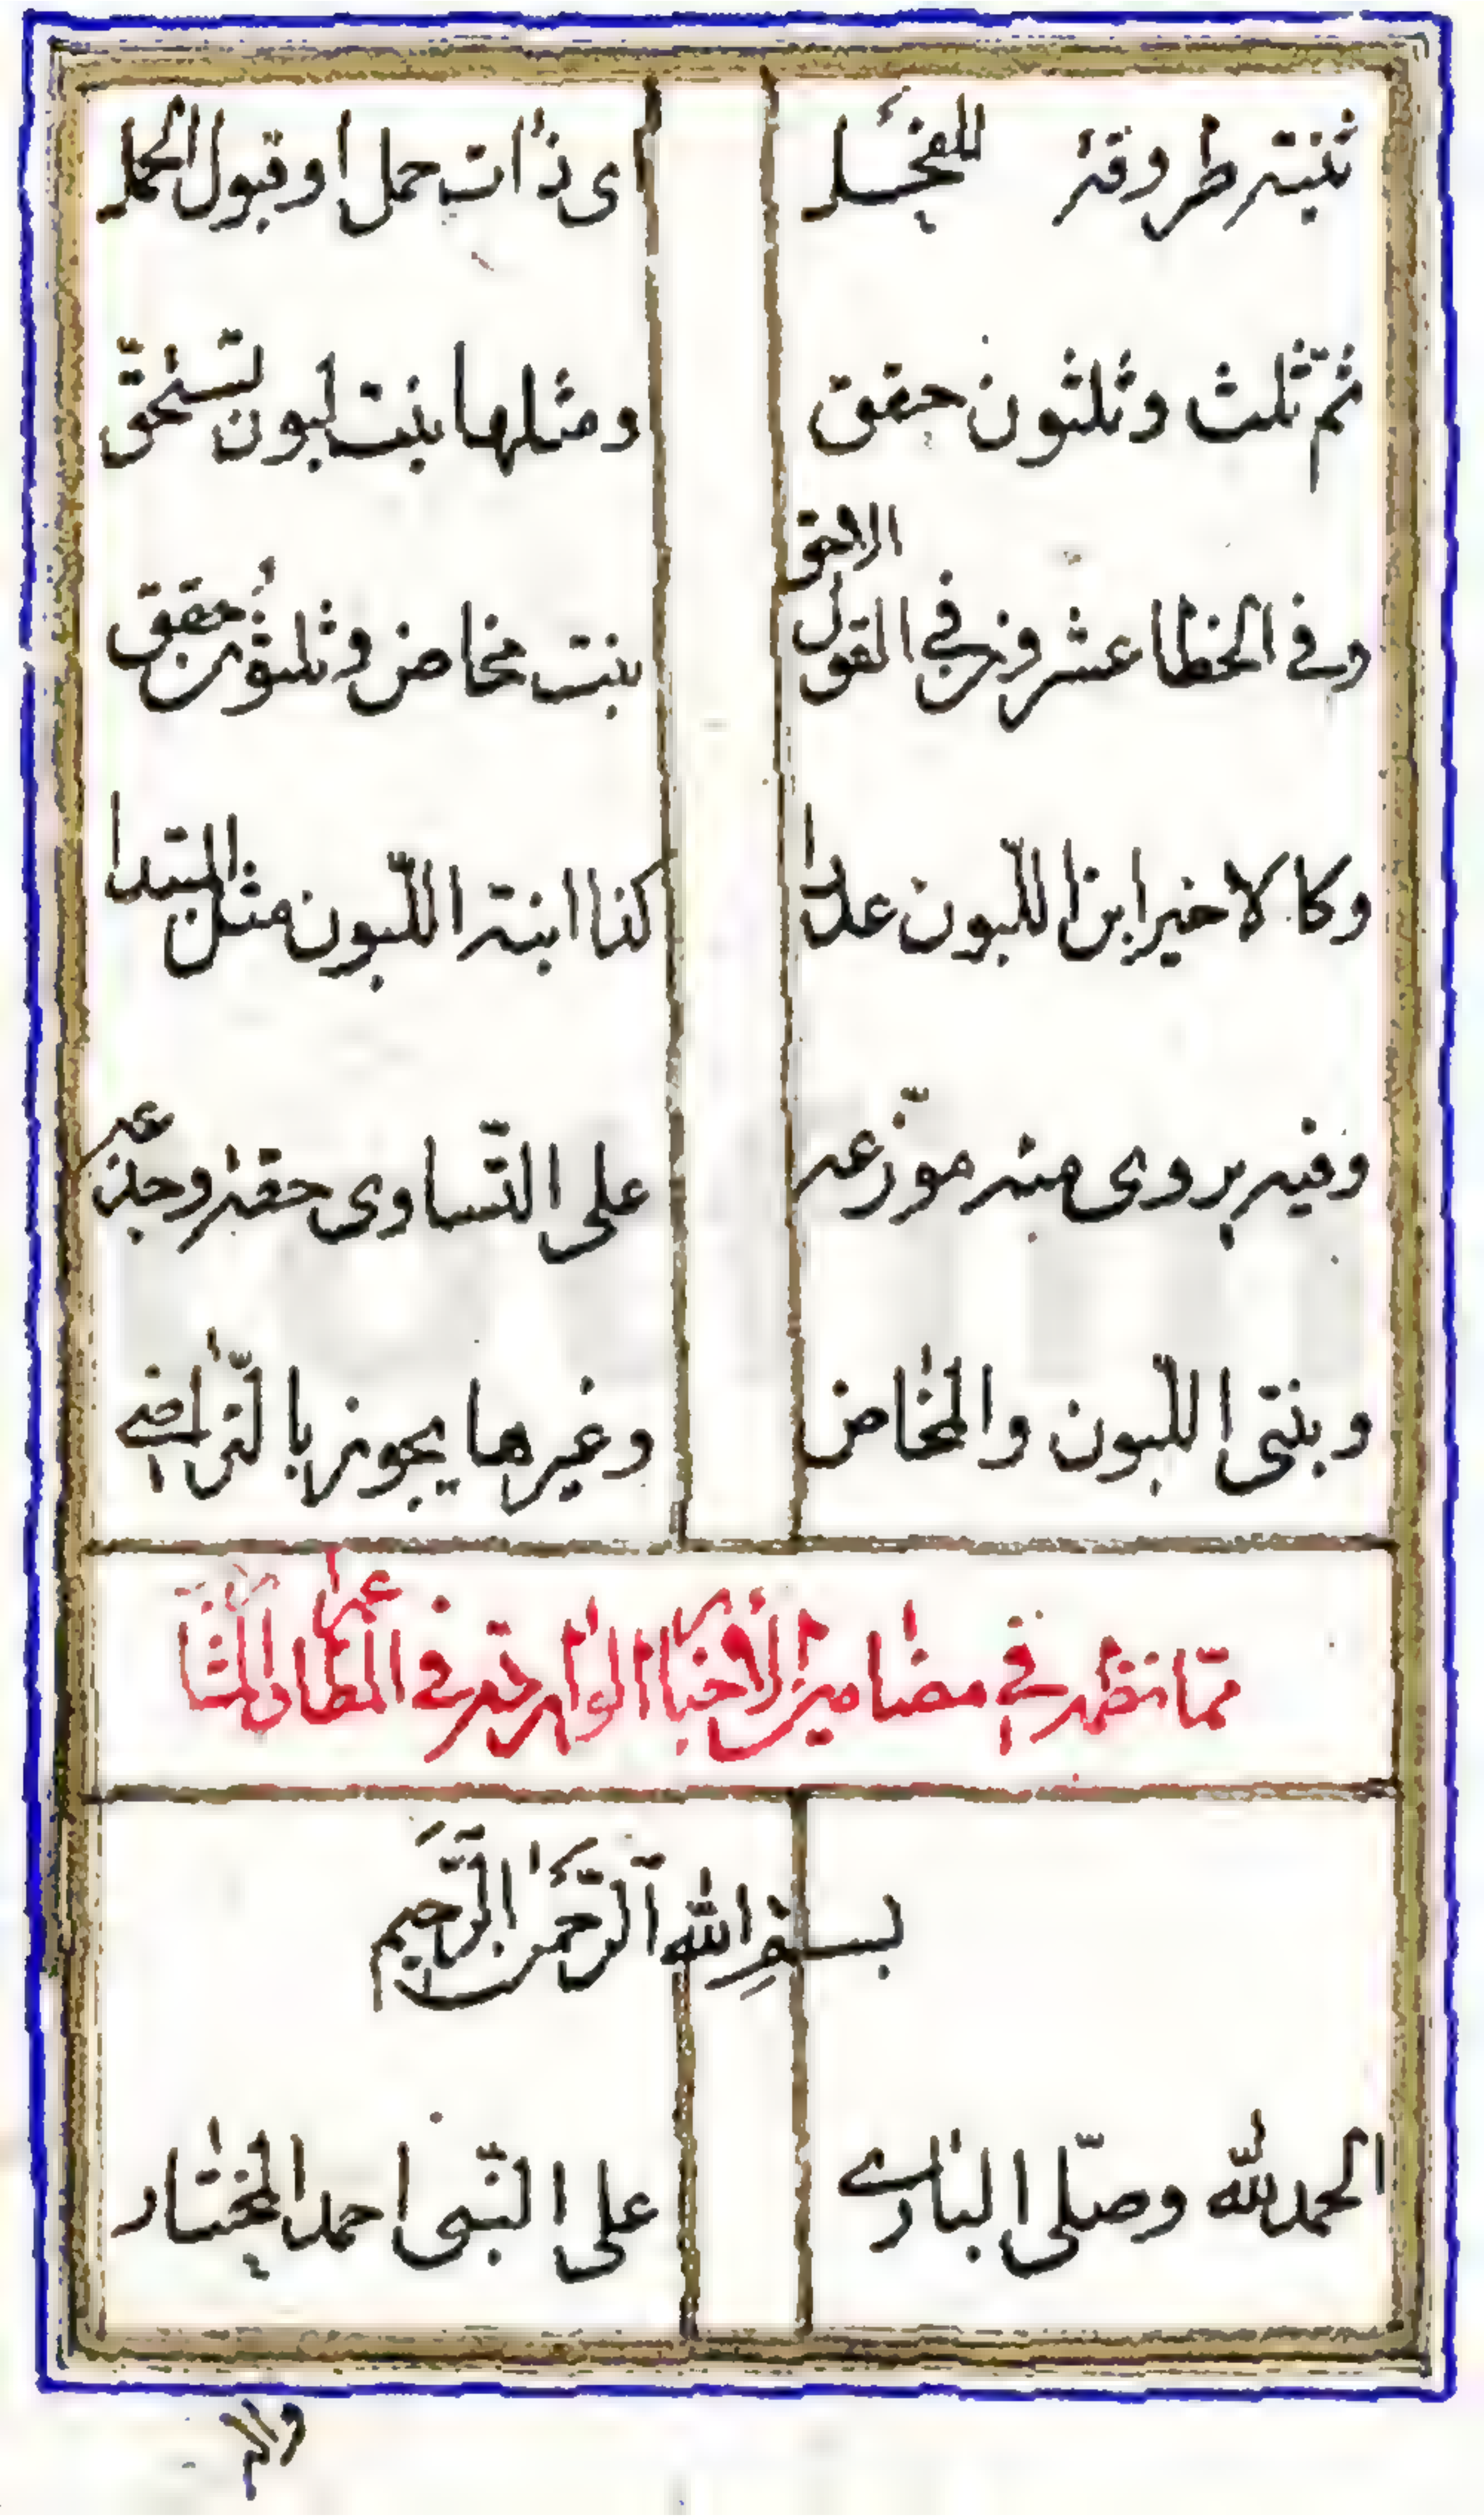 ثنية طروقة للفحل اى ذات حمل او قبول الحمل
ثم ثلث وثلثون حقق ومثلها بنت لبون تستحق
وفى الخطا عشرون فى القول الاحق بنت مخاض وثلثون حقق
وكالاخير ابن اللبون عددا كذا ابنة اللبون مثل المبتدا
وفيه يروى مئة موزعه على التساوى حقة وجذعه
وبنتى اللبون والمخاض وغيرها يجوز بالتراضى
مما نظم فى مضامير الاخبار الواردة فى المطاعم والمشارب
بسم الله الرحمن الرحيم
الحمد لله وصلى البارى على النبى احمد المختار